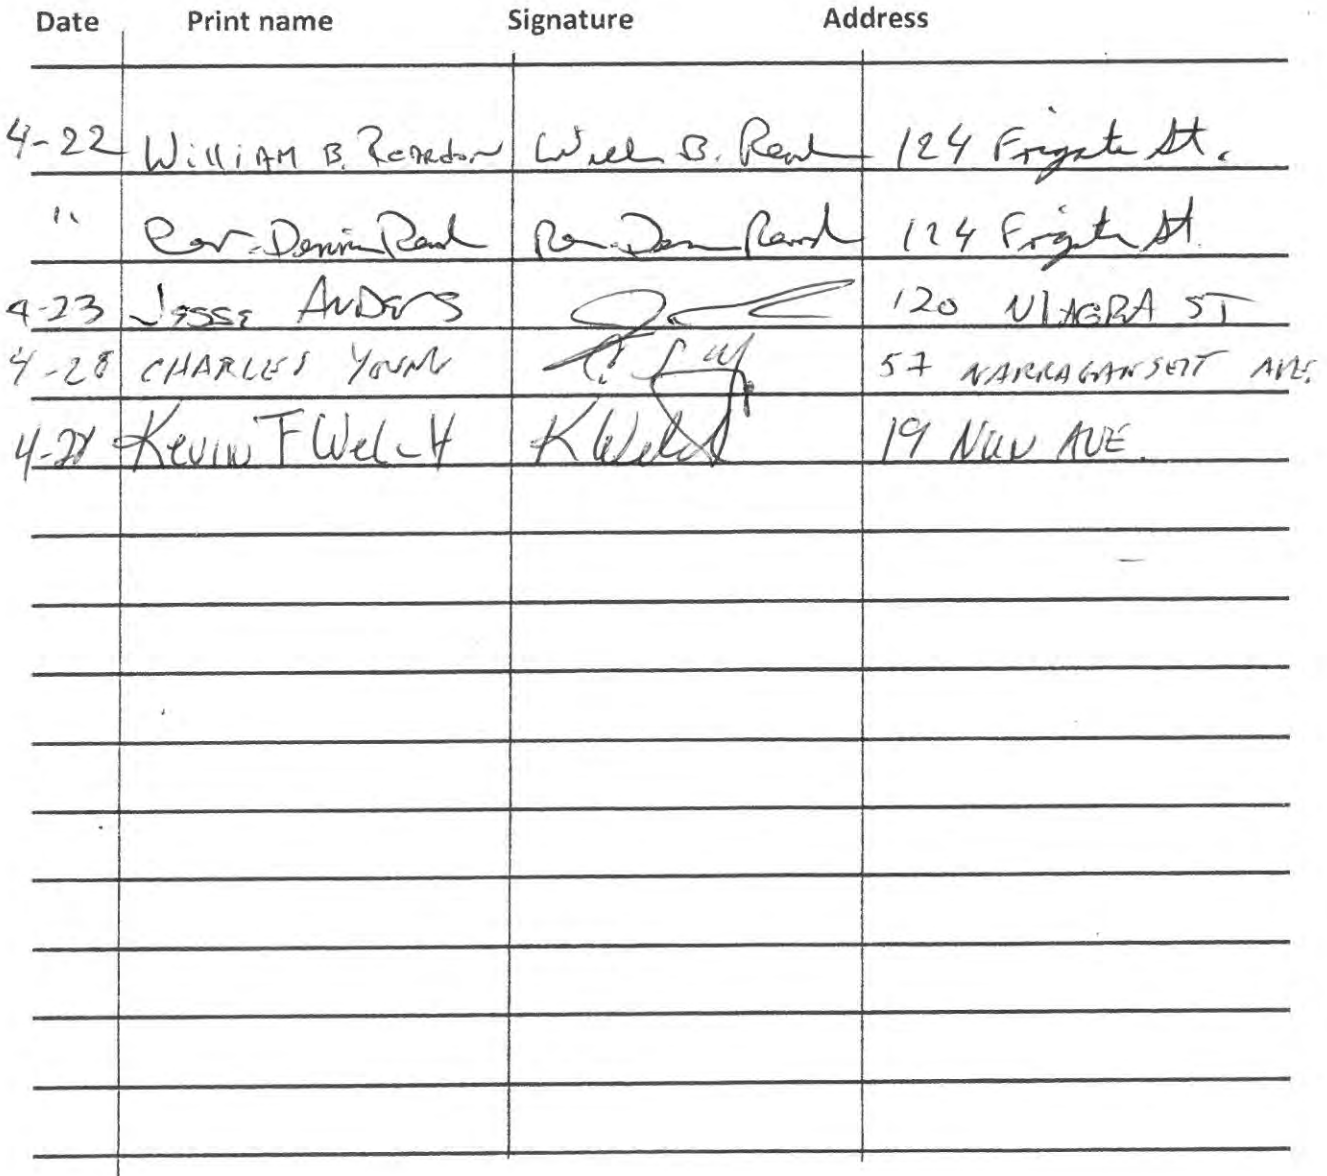 Date Print name Signature Address
4-22 William B. Reardon Will B. 124 Frigate St.
" 124 Frigate St.
4-23 Jesse Anders 120 NIAGRA ST
4-28 CHARLES YOUNG 57 NARRAGANSETT AVE.
4-28 Kevin F Welch K Welch 19 AVE.